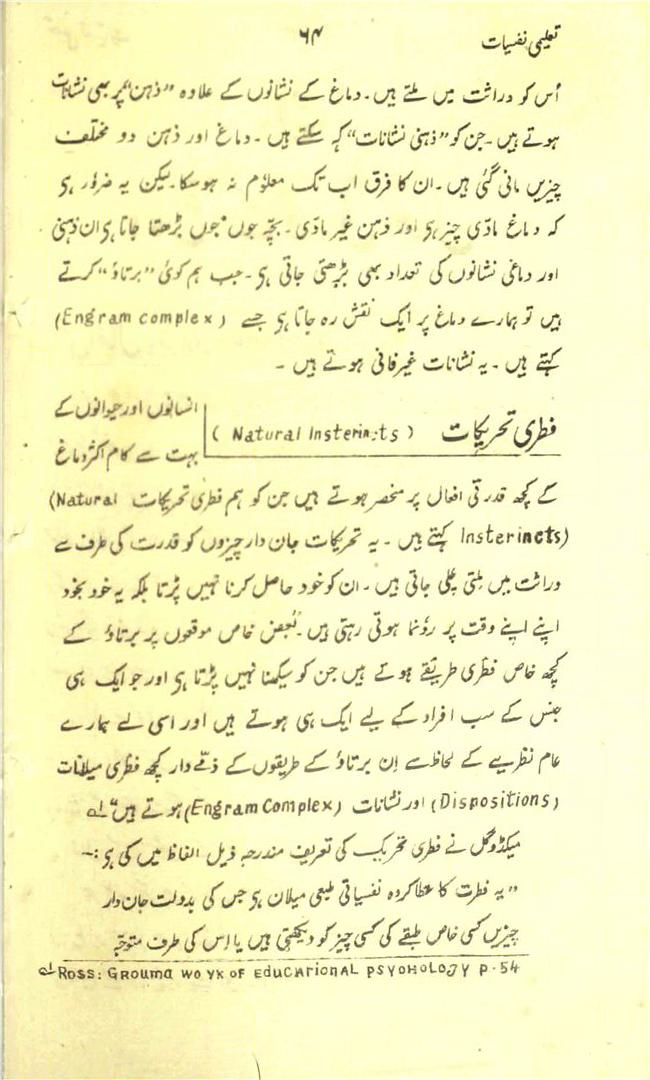 تعلیمی نفسیات
۶۴
اُس کو دراثت میں ملتے ہیں۔ دماغ کے نشانوں کے علاوہ ”ذہن“ پر بھی نشانات
ہوتے ہیں۔ جن کو ”ذہنی نشانات“ کہہ سکتے ہیں۔ دماغ اور ذہن دو مختلف
چیزیں مانی گئی ہیں۔ ان کا فرق اب تک معلوم نہ ہو سکا۔ لیکن یہ ضرور ہی
کہ دماغ مادّی چیز ہی اور ذہن غیر مادّی۔ بچّہ جوں جوں بڑھتا جاتا ہی ان ذہنی
اور دماغی نشانوں کی تعداد بھی بڑھتی جاتی ہی۔ جب ہم کوئی ”برتاؤ“ کرتے
ہیں تو ہمارے دماغ پر ایک نقش رہ جاتا ہی جسے (Engram complex)
کہتے ہیں۔ یہ نشانات غیر فانی ہوتے ہیں ۔
فطری تحریکات (Natural Insterincts) انسانوں اور حیوانوں کے
بہت سے کام اکثر دماغ
کے کچھ قدرتی افعال پر منحصر ہوتے ہیں جن کو ہم فطری تحریکات (Natural
Insterincts) کہتے ہیں ۔ یہ تحریکات جان دار چیزوں کو قدرت کی طرف سے
دراثت میں ملتی چلی جاتی ہیں ۔ ان کو خود حاصل کرنا نہیں پڑتا بلکہ یہ خود بخود
اپنے اپنے وقت پر رونما ہوتی رہتی ہیں۔ ”بعض خاص موقعوں پر برتاؤ کے
کچھ خاص فطری طریقے ہوتے ہیں جن کو سیکھنا نہیں پڑتا ہی اور جو ایک ہی
جنس کے سب افراد کے لیے ایک ہی ہوتے ہیں اور اسی لیے ہمارے
عام نظریے کے لحاظ سے اِن برتاؤ کے طریقوں کے ذمّے دار کچھ فطری میلانات
(Dispositions) اور نشانات (Engram Complex) ہوتے ہیں“ ؂۱
میکڈوگل نے فطری تحریک کی تعریف مندرجہ ذیل الفاظ میں کی ہی :۔
”یہ فطرت کا عطا کردہ نفسیاتی طبعی میلان ہی جس کی بدولت جان دار
چیزیں کسی خاص طبقے کی کسی چیز کو دیکھتی ہیں یا اِس کی طرف متوجّہ
؂۱ Ross: Grouma wo yk of Educarional Psyohology p. 54